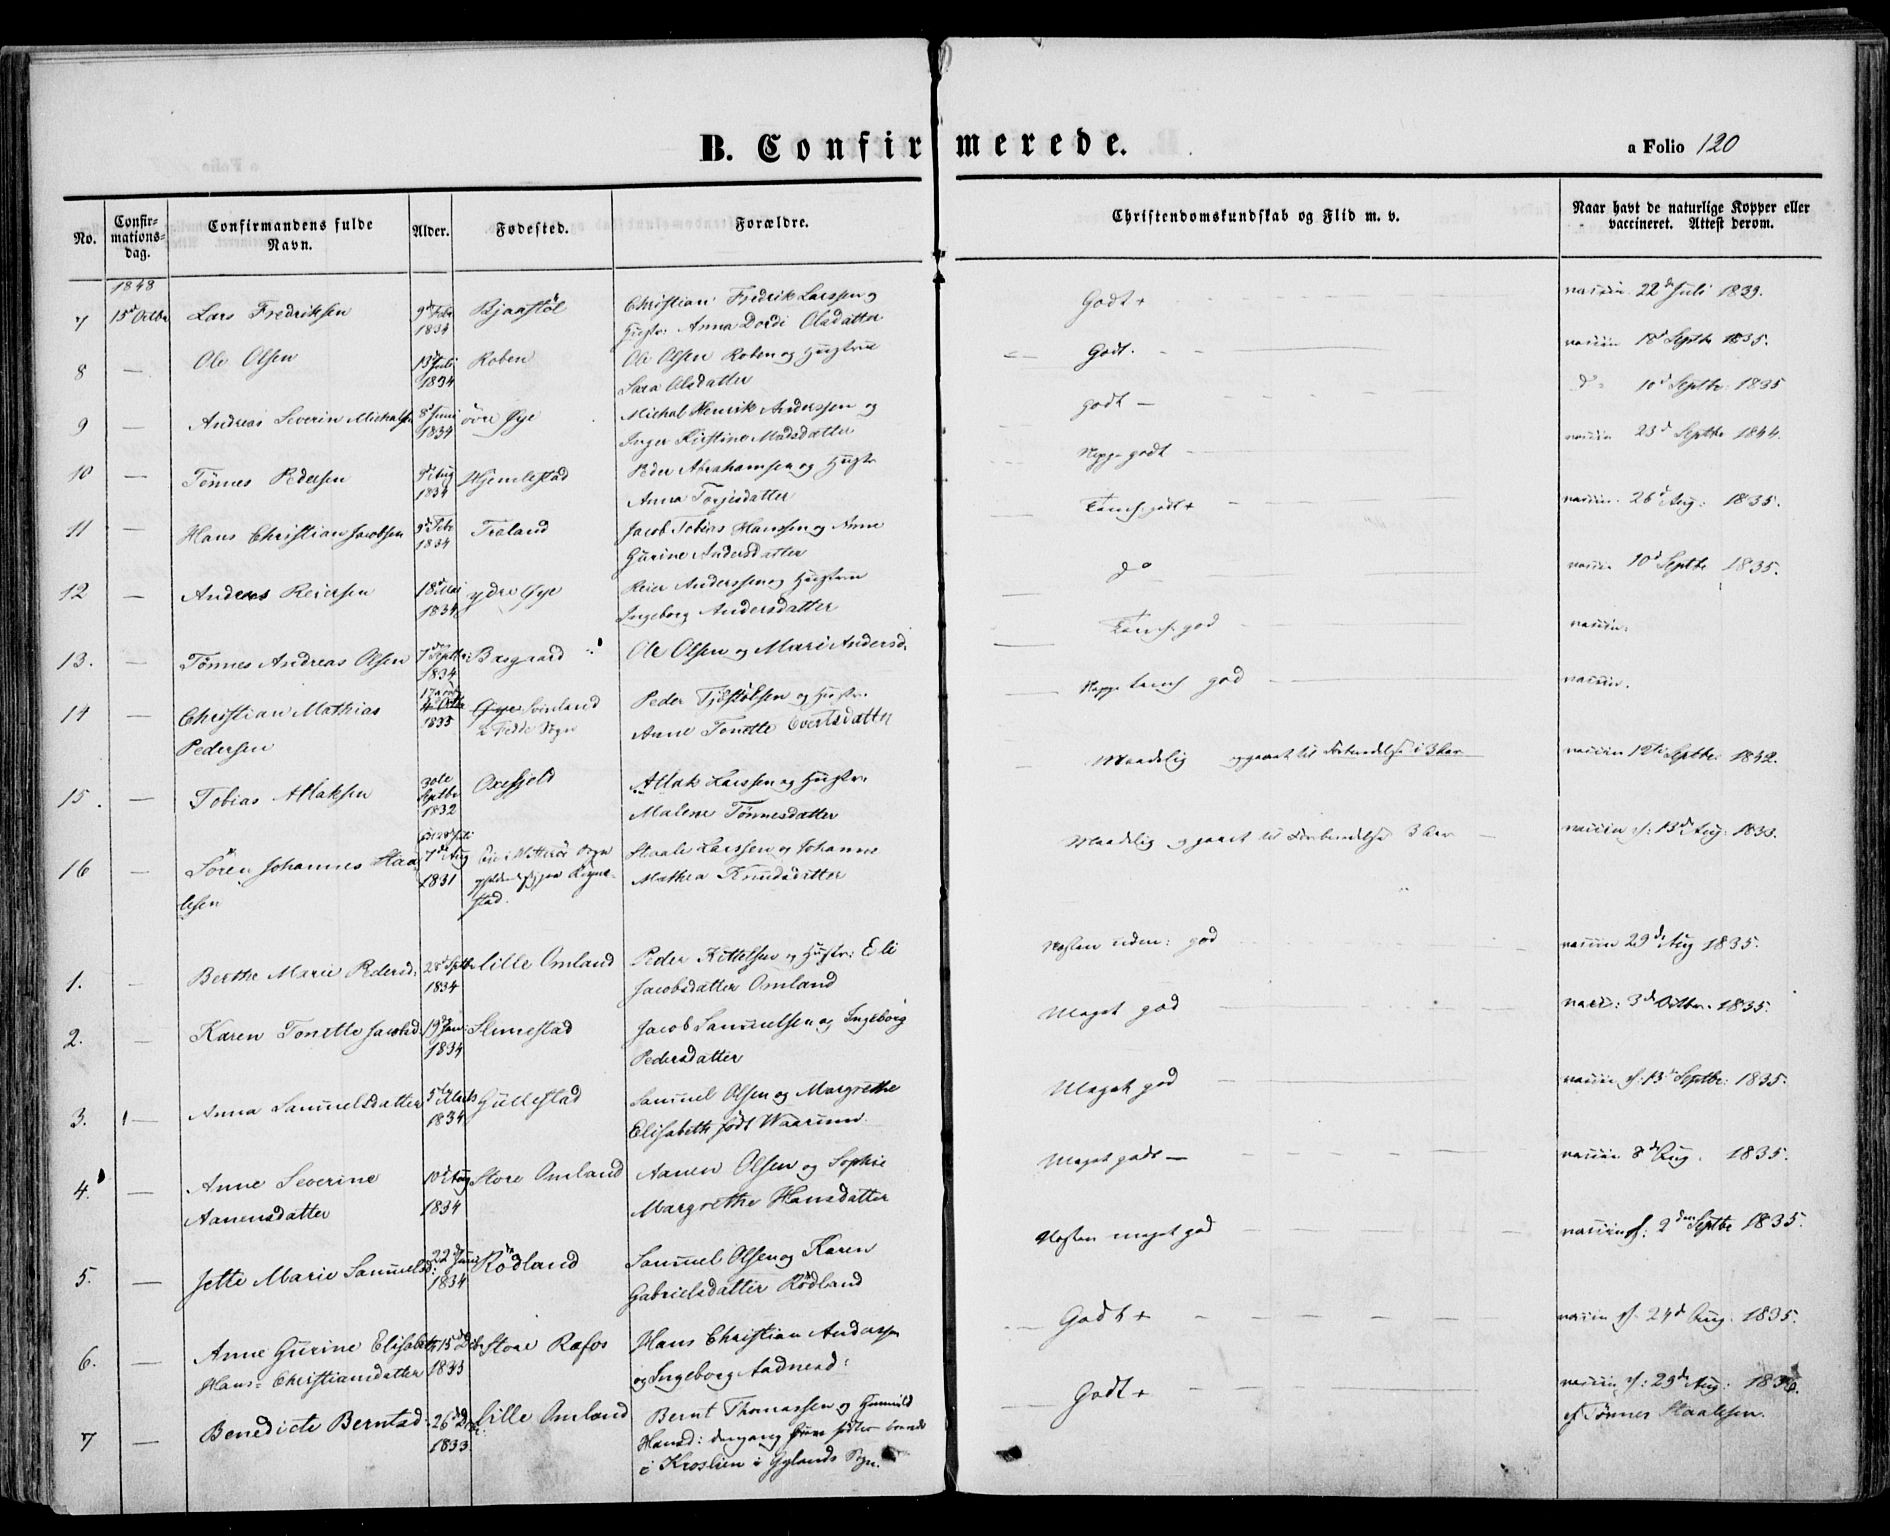 B. Confirmerede.
a Folio 120
No.
Confir-
mations-
dag.
Confirmandens fulde
Navn.
Alder.
Fødested.
Forældre.
Christendomskundskab og Flid m. v.
Naar havt de naturlige Kopper eller
vaccineret. Attest derom.
1848
7 15d Octbr Lars Fredriksen 9d Febr 1834 Christian Fredrik Larssen og
Hustr: Anna Dordi Olsdatter
Godt +
vaccin 22d Juli 1839.
8 — Ole Olsen 13d Juli 1834 Roben Ole Olsen Roben og Hustrue
Sara Olsdatter
Godt.
vaccin 18d Septbr 1835.
9 — Andreas Severin Michalsen 8d Juni 1834 øvre Øye Michal Henrik Anderssen og
Inger Kirstine Madsdatter
godt —
do 10d Septbr: 1835
10 — Tønnes Pedersen 9d Aug 1834 Hjemlestad Peder Abrahamsen og Hustr
Anna Torjesdatter
godt
vaccin 23d Septbr 1844.
11 — Hans Christian Jacobsen 9d Febr 1834 Træland Jacob Tobias Hanssen og Anne
Gurine Andersdatter
Temf. godt +
vaccin 26d Aug: 1835.
12 — Anders Reiersen 18d Mai 1834 ydre Øye Reier Anderssen og Hustrue
Ingeborg Andersdatter
do
vaccin 10d Septbr 1835.
13. — Tønnes Andreas Olsen 7d Septbr: 1834 Basgaard Ole Olsen og Mari Andersd.
Temf. god
vaccin:
14 — Christian Mathias
Pedersen
4 Octbr 1835 Øye Svinland
i Fedde Sogn
Peder Tjøstølsen og Hustr:
Anne Tonette Evertsdatter
temf god
vaccin.
15. — Tobias Atlaksen 30te Septbr 1832 Oxefjeld Atlak Larssen og Hustr:
Malene Tønnesdatter
Maadelig
vaccin 12te Septbr: 1842.
16 — Søren Johannes Staa
lesen
7d Aug 1831 Staale Larssen og Johanne
Mathea Knudsdatter
Maadelig
vaccin ef: 13d Aug: 1833.
1. — Berthe Marie Pedersd: 28d Septbr 1834 Lille Omland Peder Kittelsen og Hustr: Eli
Jacobsdatter Omland
Næsten uden: god
vaccin 29d Aug 1835.
2. — Karen Tonette Jacobsd: 19d Jan: 1834 Slimestad Jacob Samuelsen og Ingeborg
Pedersdatter
Meget god
vacc: 3d Octbr. 1835.
3. — Anna Samuelsdatter 5te Marts 1834 Gullestad Samuel Olsen og Margrethe
Elisabeth født Waarum
Meget god
vaccin ef: 13d Septbr: 1835.
4. — Anne Severine
Aanensdatter
10d Aug 1834 Store Omland Aanen Olsen og Sophie
Margrethe Hansdatter
Meget godt —
vaccin 8d Aug. 1835.
5. — Jette Marie Samuelsd: 22d Juni 1834 Rødland Samuel Olsen og Karen
Gabrielsdatter Rødland
Næsten meget god
vaccin ef: 2den Septbr 1835.
6. — Anne Gurine Elisabeth
Hans= Christiansdatter
15d Dcbr 1833 Store Rafos Hans Christian Anderssen
og Ingeborg Aadnesd:
Godt +
vaccin ef. 24d Aug. 1835.
7 — Benedicte Berntsd. 26d Dcbr 1833 Lille Omland Bernt Thomassen og Gunvild
Hansd: dengang
i Kroslien i Gylands Sogn.
Godt +
vaccin ef: 29d Aug: 1836.
ef Tønnes Staalesen.